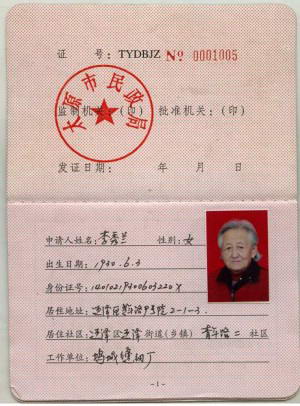 证 号：TYDBJZ № 0001005
太原市民政局
监制机关：（印） 批准机关：（印）
发证日期： 年 月 日
申请人姓名：李秀兰 性别：女
出生日期：1930.6.3
身份证号：14010219300603220X
居住地址： 2-1-3.
居住社区：迎泽区迎泽街道(乡镇) 社区
工作单位： 厂
-1-